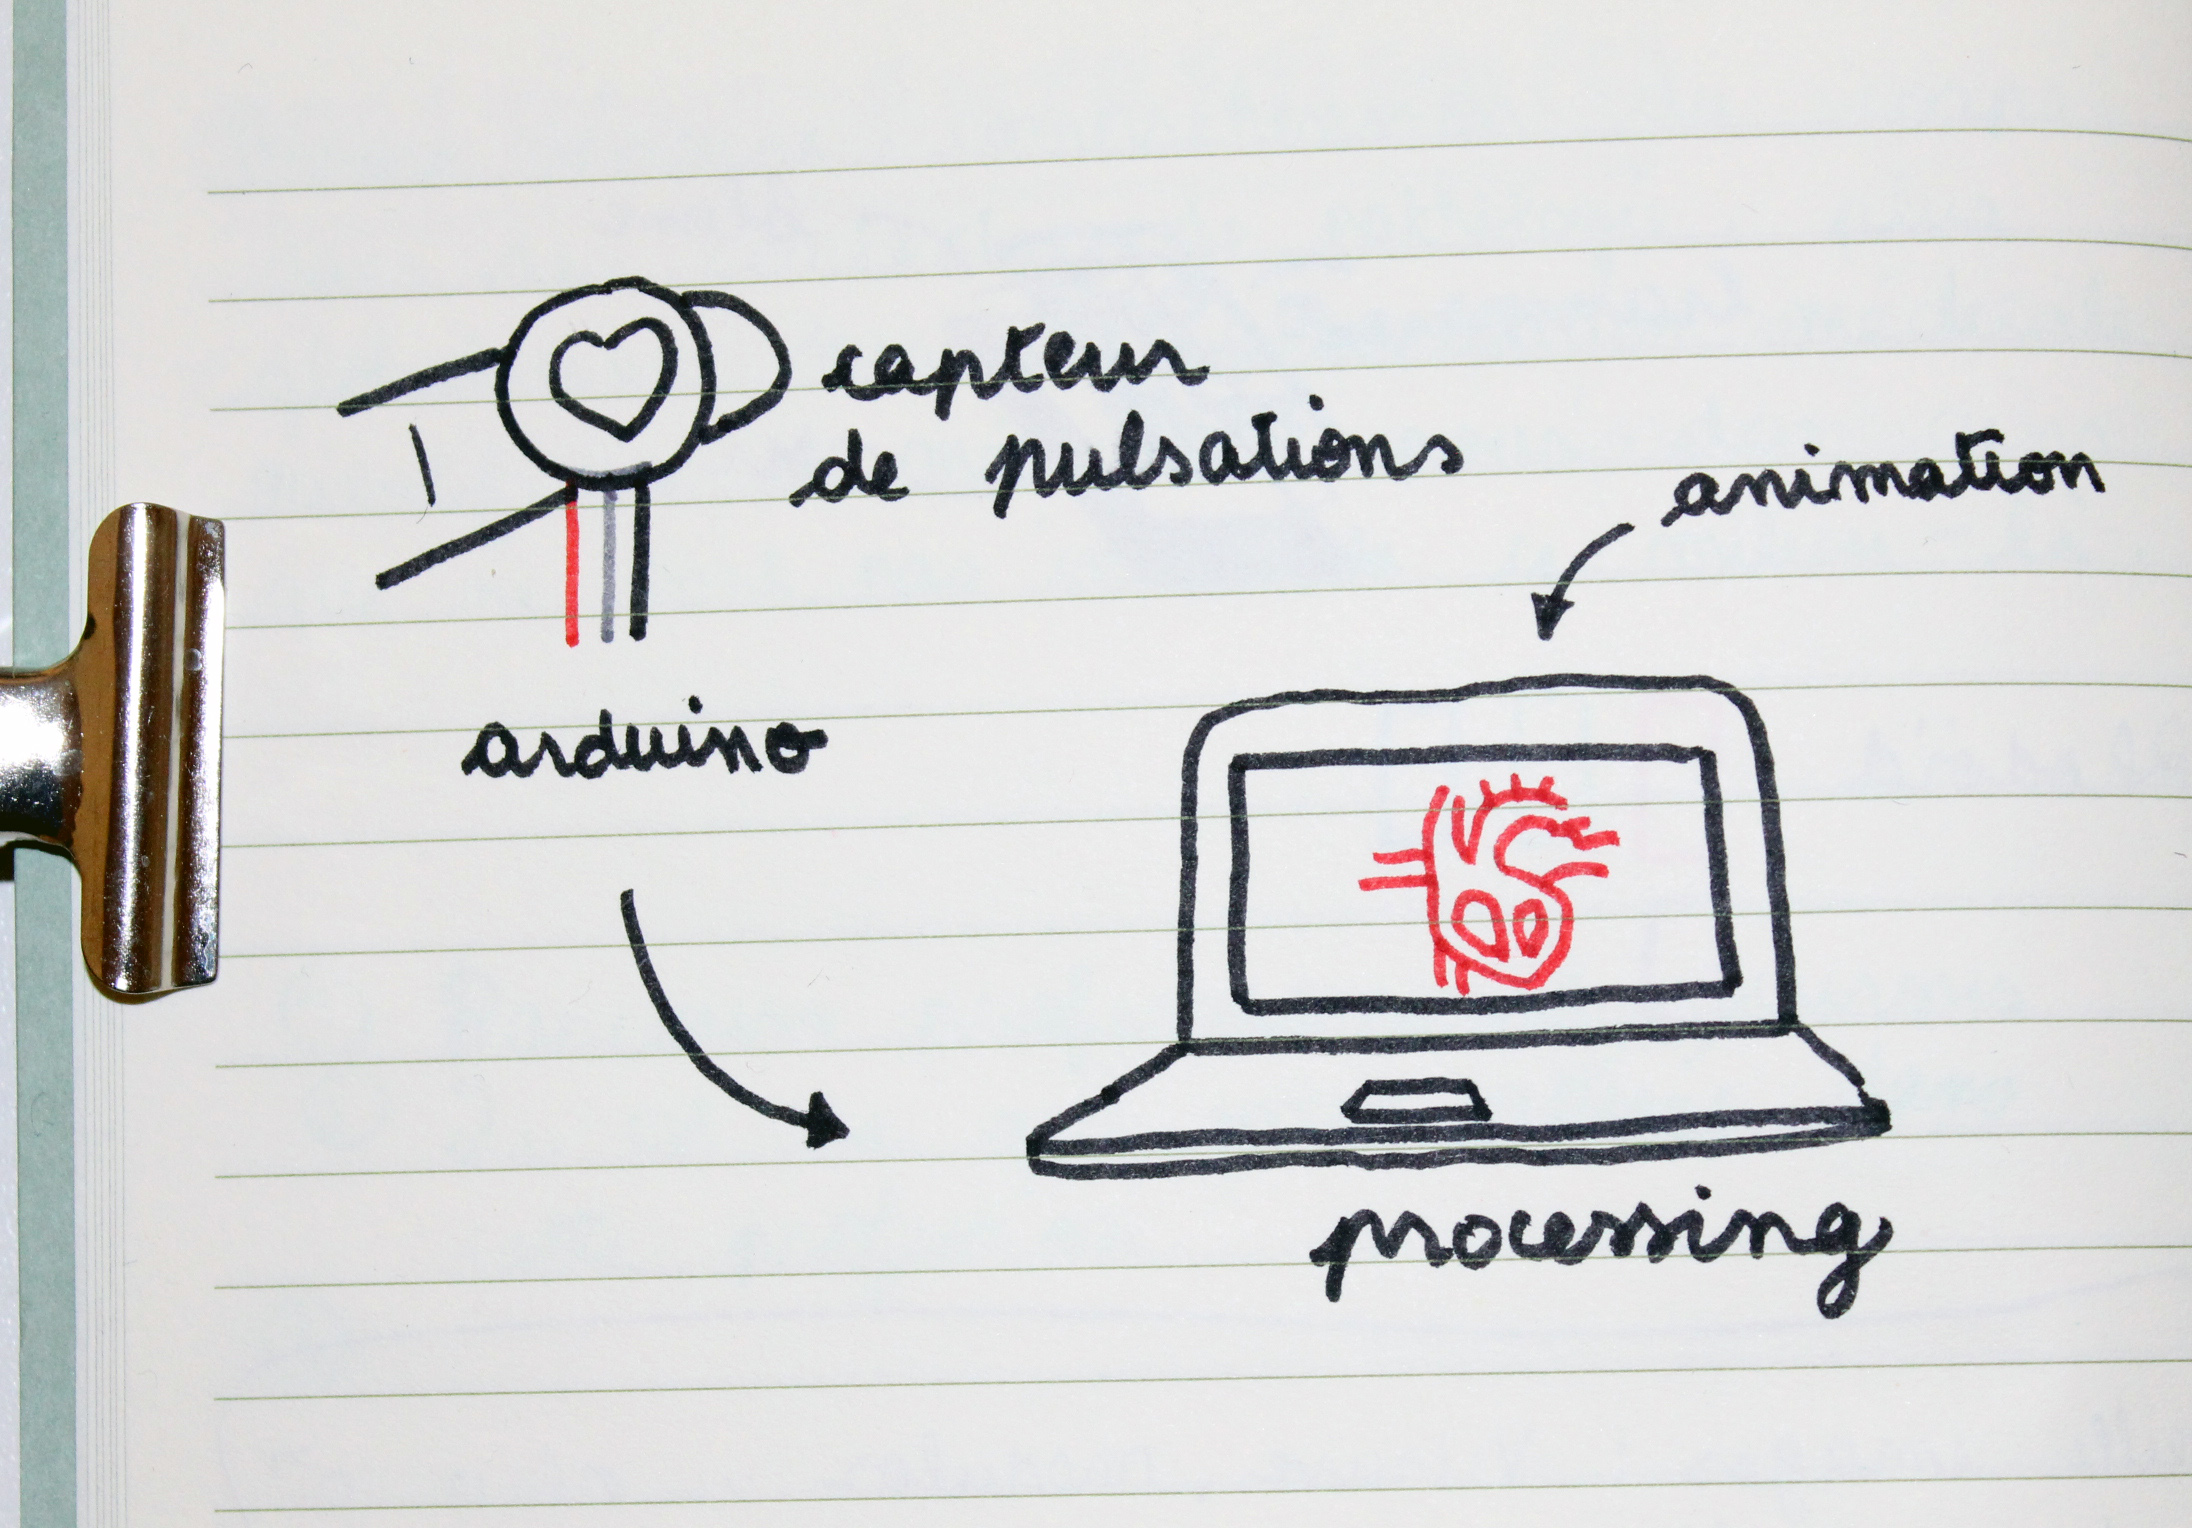 capteur
de pulsations
animation
arduino
processing